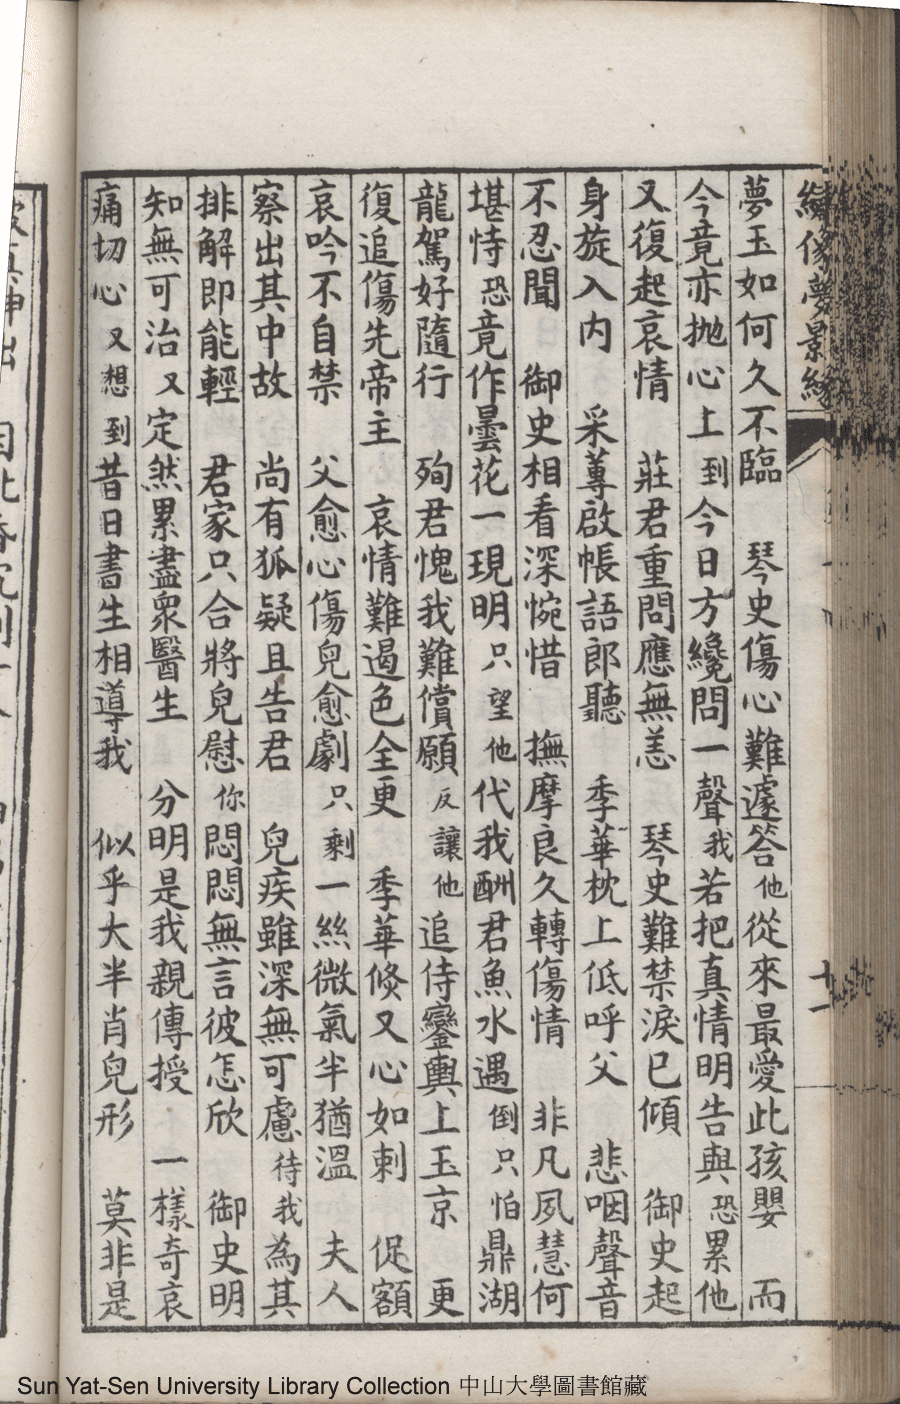 繡像夢景緣
十一
夢玉如何久不臨　琴史傷心難遽答他從來最愛此孩嬰　而
今竟亦抛心上到今日方纔問一聲我若把真情明告與恐累他
又復起哀情　莊君重問應無恙　琴史難禁淚已傾　御史起
身旋入内　采蓴啟帳語郎聽　季華枕上低呼父　悲咽聲音
不忍聞　御史相看深惋惜　撫摩良久轉傷情　非凡夙慧何
堪恃恐竟作曇花一現明只望他代我酬君魚水遇倒只怕鼎湖
龍駕好隨行　殉君愧我難償願反讓他追侍鑾輿上玉京　更
復追傷先帝主　哀情難遏色全更　季華倐又心如刺　促額
哀吟不自禁　父愈心傷兒愈劇只剩一絲微氣半猶溫　夫人
察出其中故　尚有狐疑且告君　兒疾雖深無可慮待我為其
排解即能輕　君家只合將兒慰你悶悶無言彼怎欣　御史明
知無可治又定然累盡衆醫生　分明是我親傳授　一樣奇哀
痛切心又想到昔日書生相導我　似乎大半肖兒形　莫非是
Sun Yat-Sen University Library Collection 中山大學圖書館藏